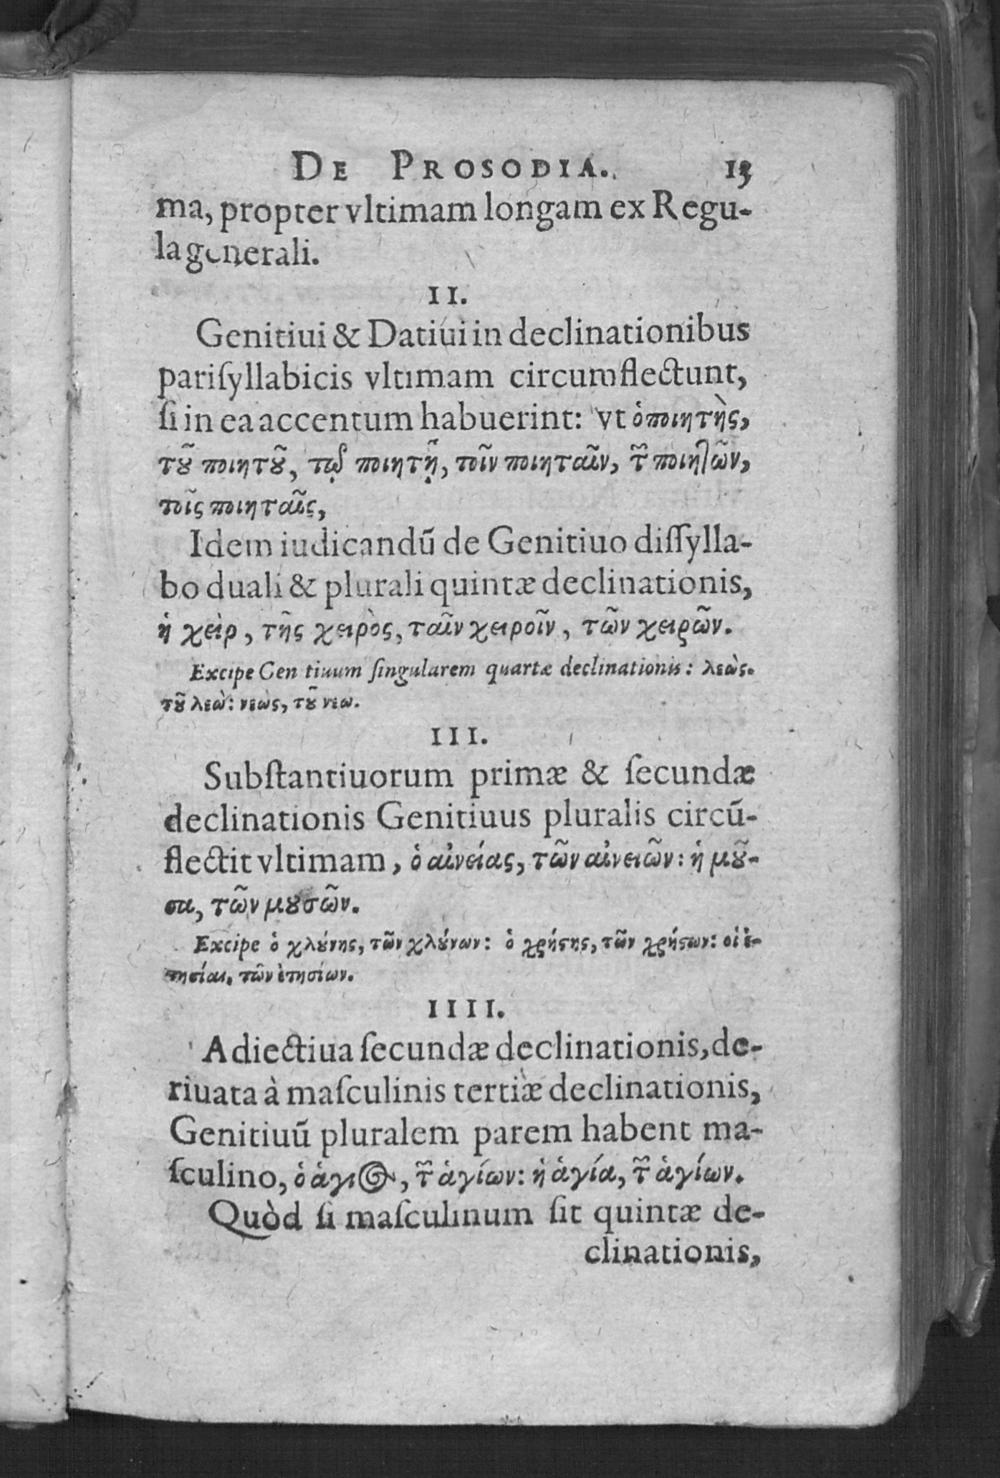 DE PROSODIA. 13
ma, propter vltimam longam ex Regu-
la generali.
II.
Genitiui & Datiui in declinationibus
pariſyllabicis vltimam circumflectunt,
ſi in ea accentum habuerint: vt ὁ ποιητὴς,
τȣ͂ ποιητȣ͂, τῷ ποιητῇ, τοῖν ποιηταῖν, τῶν ποιητῶν,
τοῖς ποιηταῖς,
Idem iudicandū de Genitiuo diſſylla-
bo duali & plurali quintæ declinationis,
ἡ χεὶρ, τῆς χειρὸς, ταῖν χειροῖν, τῶν χειρῶν.
Excipe Gen tiuum ſingularem quartæ declinationis: λεὼς.
τȣ͂ λεὼ: νεὼς, τȣ͂ νεω.
III.
Subſtantiuorum primæ & ſecundæ
declinationis Genitiuus pluralis circū-
flectit vltimam, ὁ αἰνείας, τῶν αἰνειῶν: ἡ μȣ͂-
σα, τῶν μȣσῶν.
Excipe ὁ χλȣ́νης, τῶν χλȣ́νων: ὁ χρήστης, τῶν χρήστων: οἱ ἐ-
τησίαι, τῶν ἐτησίων.
IIII.
Adiectiua ſecundæ declinationis, de-
riuata à maſculinis tertiæ declinationis,
Genitiuū pluralem parem habent ma-
ſculino, ὁ ἅγιος, τῶν ἁγίων: ἡ ἁγία, τῶν ἁγίων.
Quòd ſi maſculinum ſit quintæ de-
clinationis,